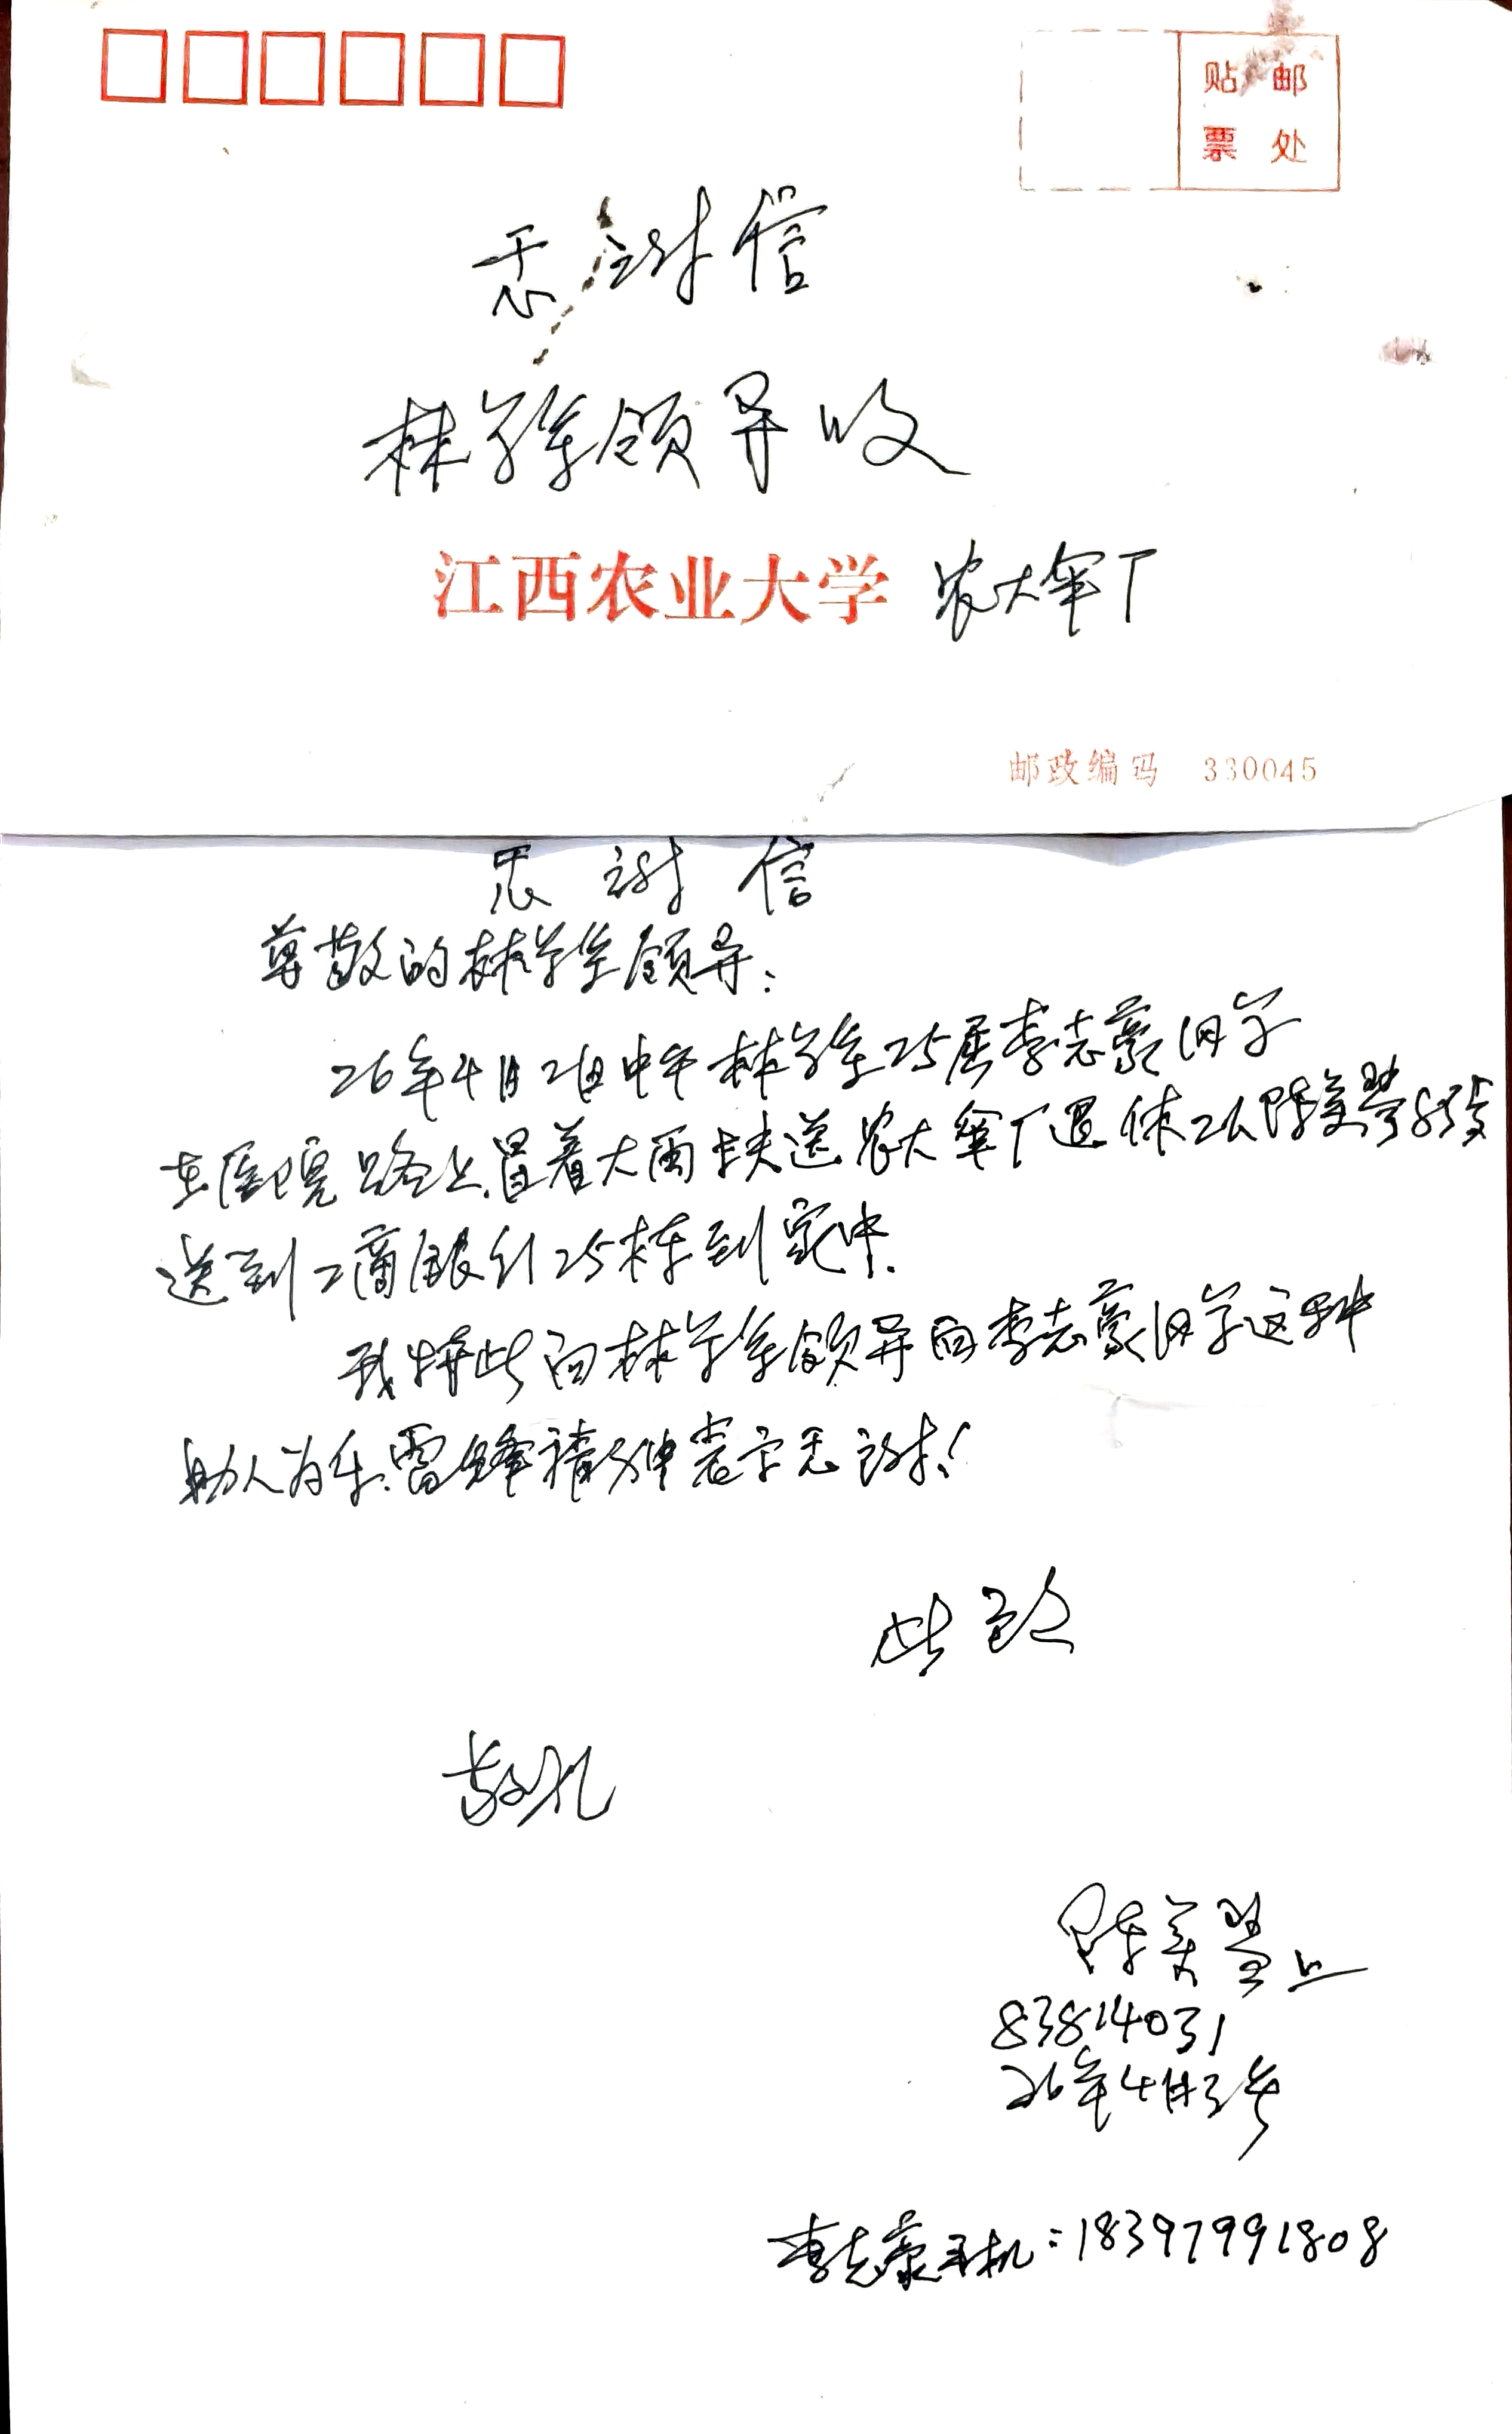 贴邮
票处
感谢信
林学院领导收
江西农业大学 农大军厂
邮政编码 330045
感谢信
尊敬的林学院领导:
26年4月2日中午林学院25届李志豪同学
在医院路上,冒着大雨护送农大军厂退休工人陈美琴
送到工商银行25栋到家中.
我特此向林学院领导向李志豪同学这种
助人为乐.雷锋精神表示感谢!
此致
敬礼
陈美琴上
83814031
26年4月3号
李志豪手机:18397991808